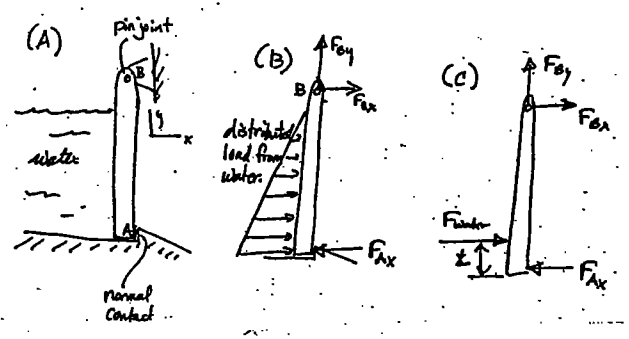 (A)
pin joint
B
y
x
water
A
normal
contact
(B)
F_By
B
F_Bx
distributed
load from
water
F_Ax
(C)
F_By
F_Bx
F_water
F_Ax